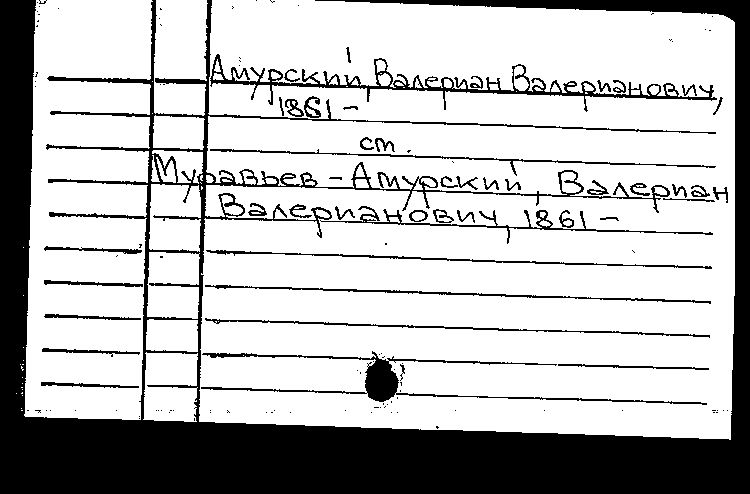 Амурский, Валериан Валерианович,
1861 –
ст.
Муравьев – Амурский, Валериан
Валерианович, 1861 –